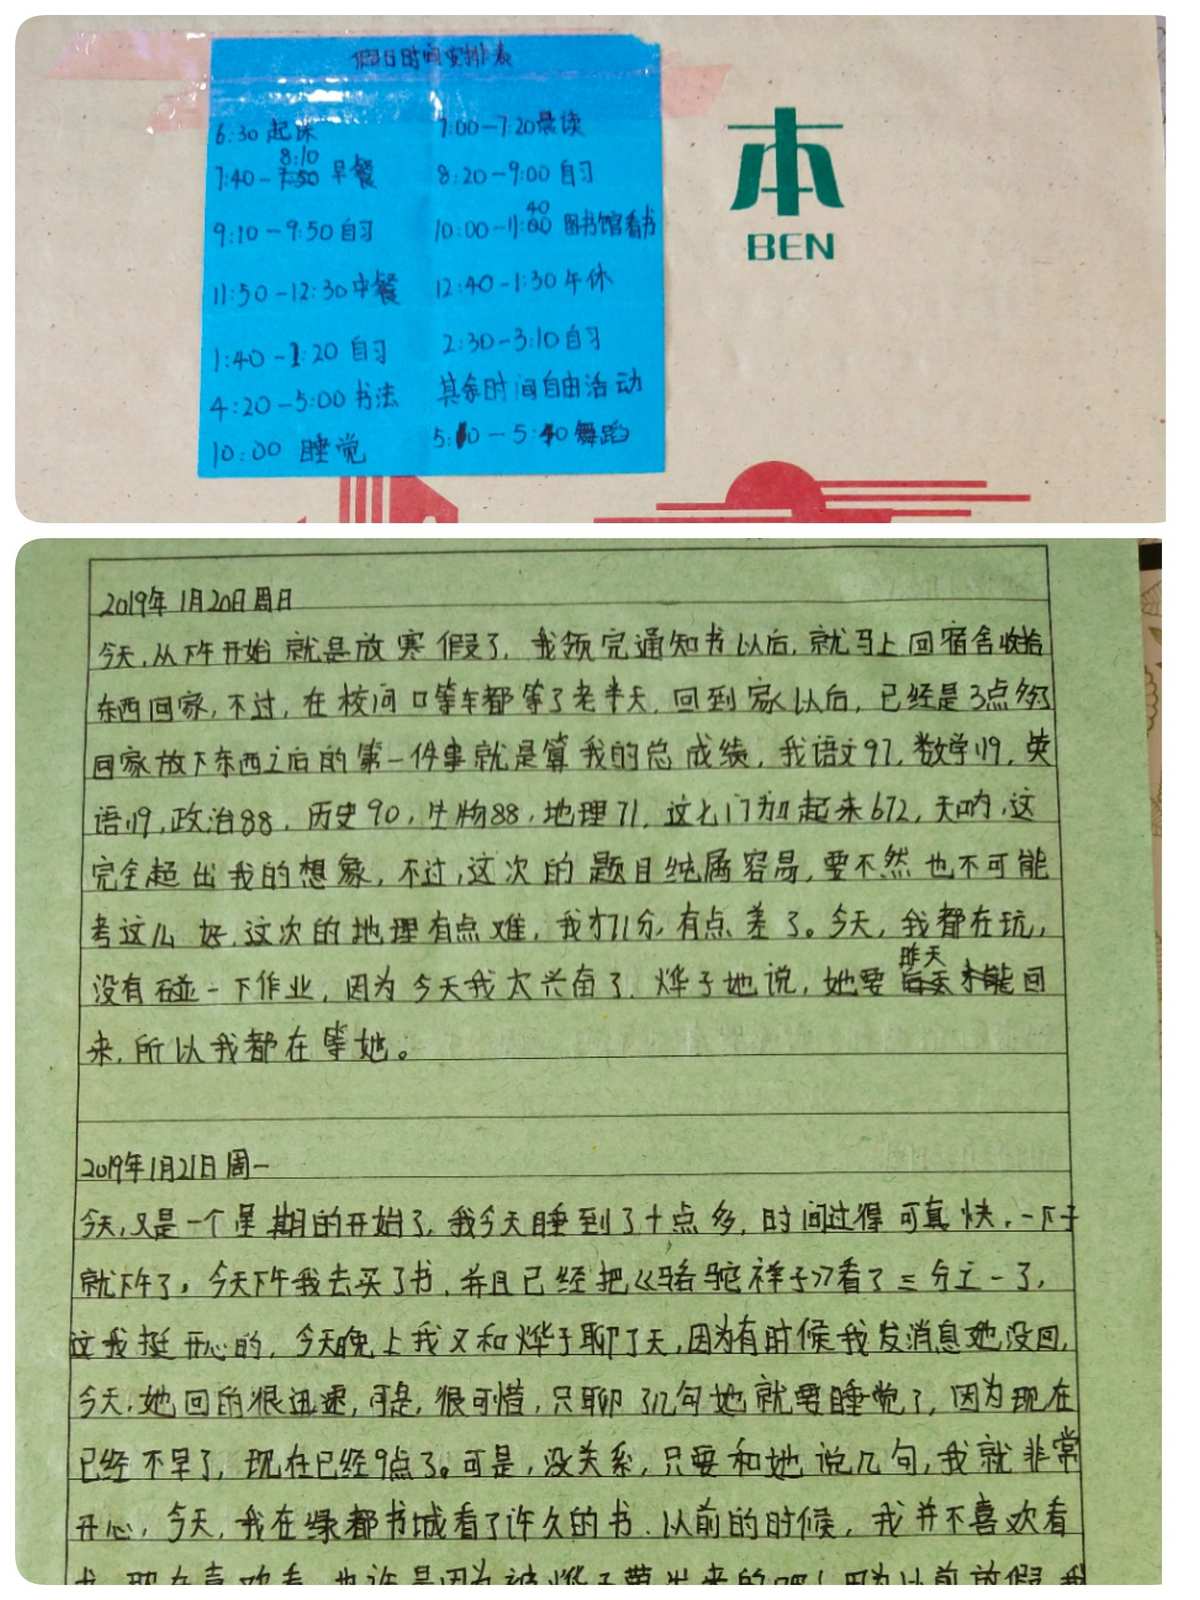 假日时间安排表
6:30 起床 7:00-7:20晨读
7:40-8:10 早餐 8:20-9:00 自习
9:10-9:50自习 10:00-11:40 图书馆看书
11:50-12:30中餐 12:40-1:30午休
1:40-2:20 自习 2:30-3:10自习
4:20-5:00书法 其余时间自由活动
10:00 睡觉 5:10-5:40舞蹈
本
BEN
2019年1月20日周日
今天,从下午开始就是放寒假了,我领完通知书以后,就马上回宿舍收拾
东西回家,不过,在校门口等车都等了老半天,回到家以后,已经是3点多了
回家放下东西之后的第一件事就是算我的总成绩,我语文97,数学119,英
语119,政治88,历史90,生物88,地理71,这七门加起来672,天呐,这
完全超出我的想象,不过,这次的题目纯属容易,要不然也不可能
考这么好,这次的地理有点难,我才71分,有点差了。今天,我都在玩,
没有碰一下作业,因为今天我太兴奋了.烨子她说,她要昨天才能回
来,所以我都在等她。
2019年1月21日周一
今天,又是一个星期的开始了,我今天睡到了十点多,时间过得可真快,一下子
就下午了。今天下午我去买了书,并且已经把《骆驼祥子》看了三分之一了,
这我挺开心的,今天晚上我又和烨子聊了天,因为有时候我发消息她没回,
今天,她回的很迅速,可是,很可惜,只聊了几句她就要睡觉了,因为现在
已经不早了,现在已经9点了。可是,没关系,只要和她说几句,我就非常
开心,今天,我在绿都书城看了许久的书.以前的时候,我并不喜欢看